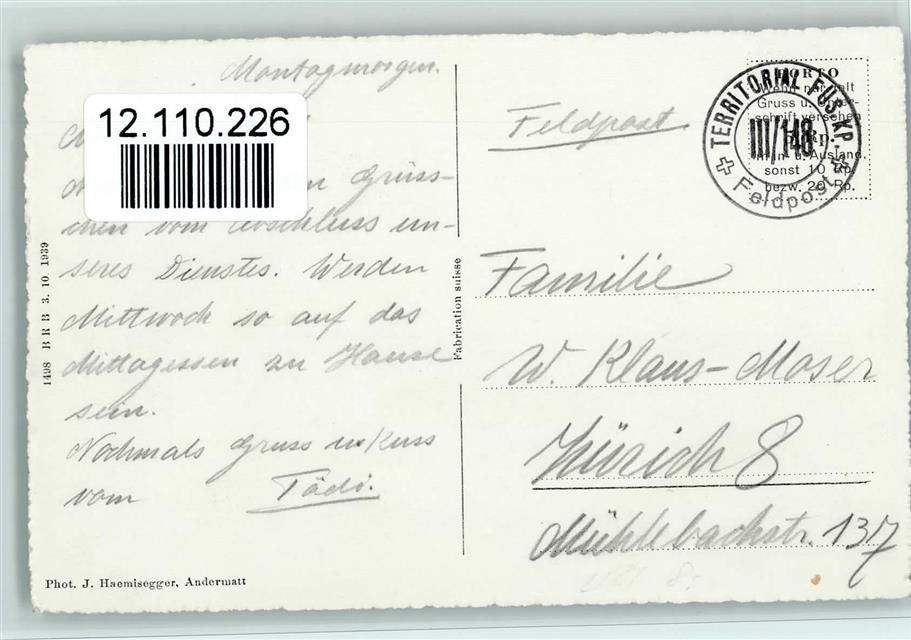 Montagmorgen.
12.110.226
Grüss-
chen vom Abschluss un-
seres Dienstes. Werden
Mittwoch so auf das
Mittagessen zu Hause
sein.
Nochmals Gruss u Kuss
vom Tädi.
1498 BRB 3. 10. 1939
Phot. J. Haemisegger, Andermatt
Fabrication suisse
Feldpost
TERRITORIAL FUS. KP.
III/148
Feldpost
PORTO
Wenn nur mit
Gruss u.
schrift versehen
5 Rp.
im In- u. Ausland,
sonst 10 Rp.
bezw. 20 Rp.
Familie
W. Klaus-Moser
Zürich 8
Mühlebachstr. 137